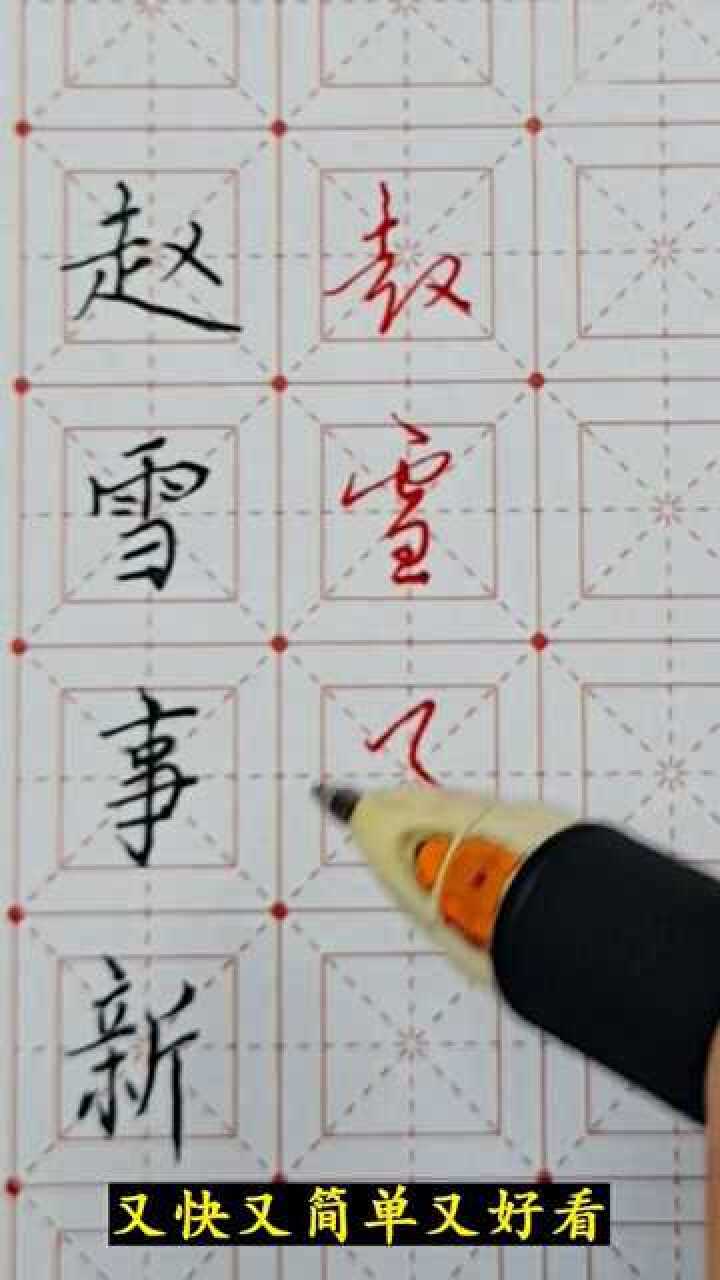 赵 赵
雪 雪
事
新
又快又简单又好看